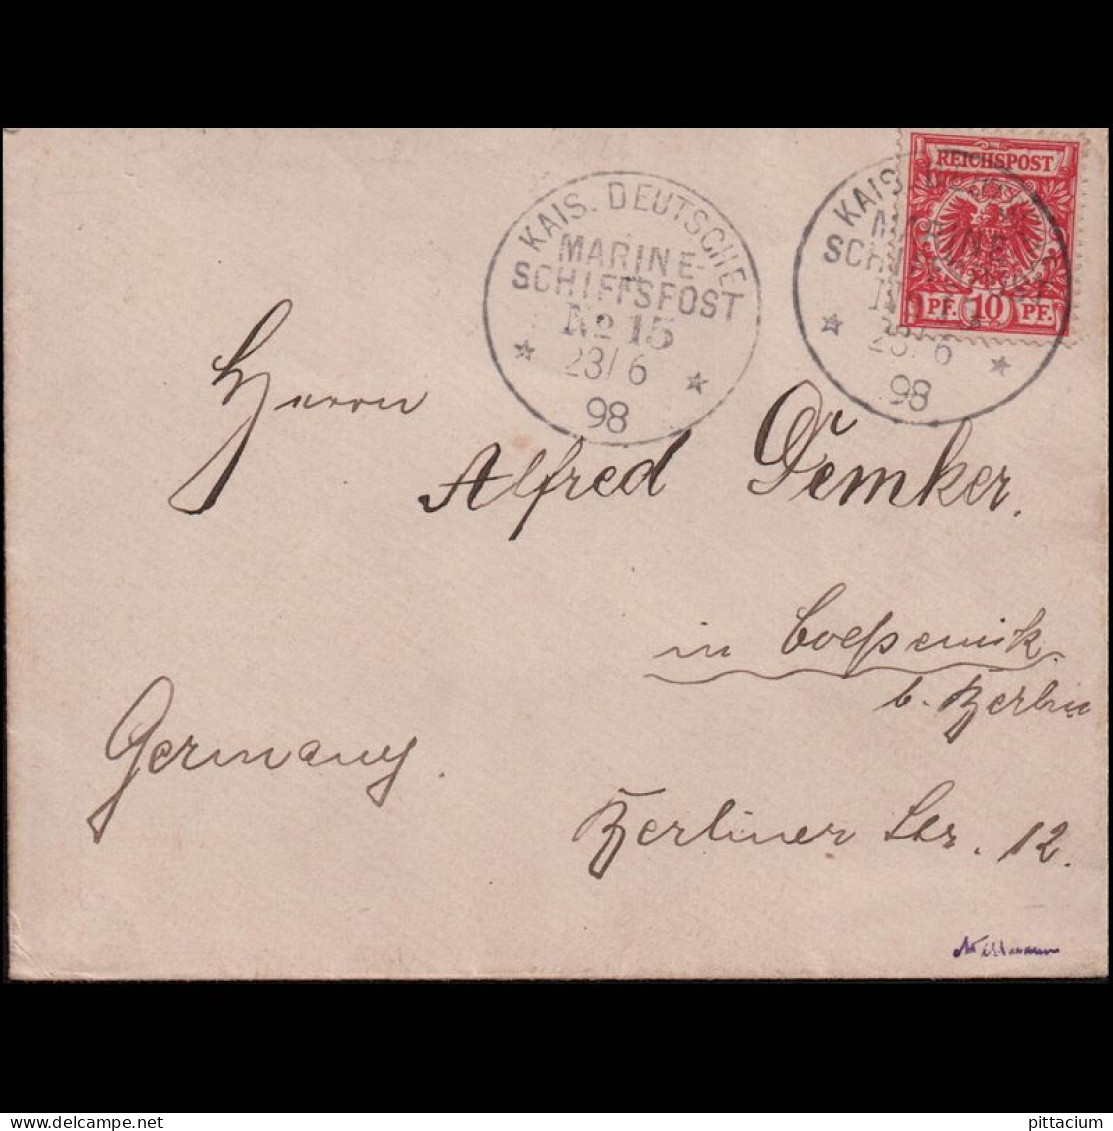 KAIS. DEUTSCHE
MARINE-
SCHIFFSPOST
No 15
23/6
98
REICHSPOST
PF. 10 PF.
KAIS. DEUTSCHE
MARINE-
SCHIFFSPOST
No 15
23/6
98
Herrn
Alfred Demker.
in Coepenick.
b. Berlin
Germany.
Berliner Str. 12.
delcampe.net
pittacium